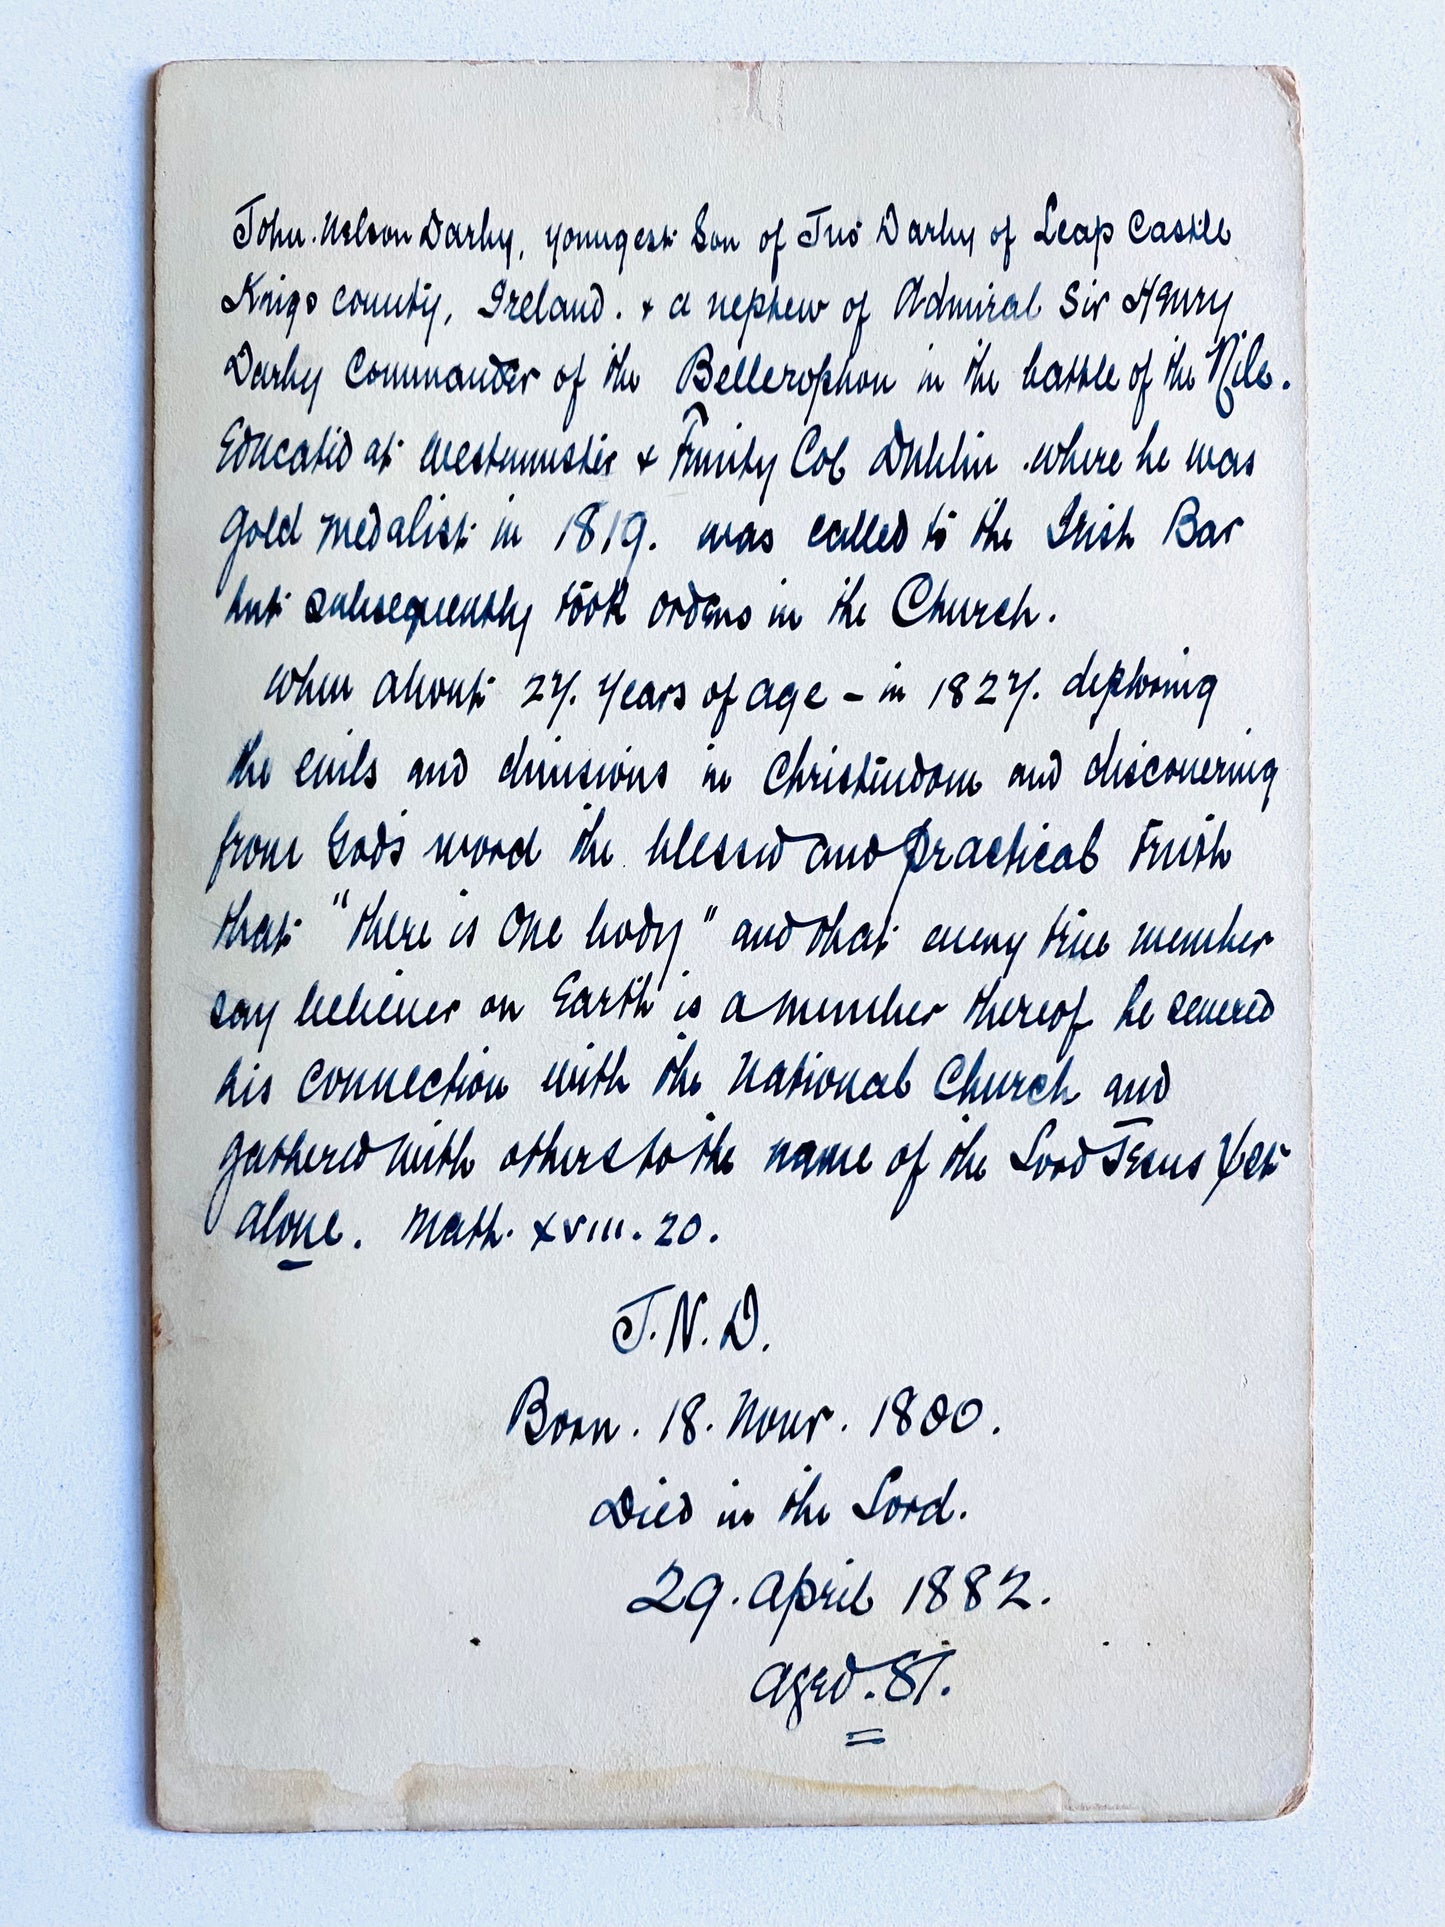 John Nelson Darby, youngest Son of Jno Darby of Leap Castle
Kings county, Ireland. & a nephew of Admiral Sir Henry
Darby Commander of the Bellerophon in the battle of the Nile.
Educated at Westminster & Trinity Col Dublin where he was
gold medalist in 1819. was called to the Irish Bar
but subsequently took orders in the Church.
when about 27. years of age – in 1827. deploring
the evils and divisions in Christendom and discovering
from God's word the blessed and practical truth
that "there is One body" and that every true member
say believer on Earth is a member thereof he severed
his connection with the National Church and
gathered with others to the name of the Lord Jesus Xst
alone. Math. xviii. 20.
J. N. D.
Born. 18. Novr. 1800.
Died in the Lord.
29. April 1882.
aged. 81.